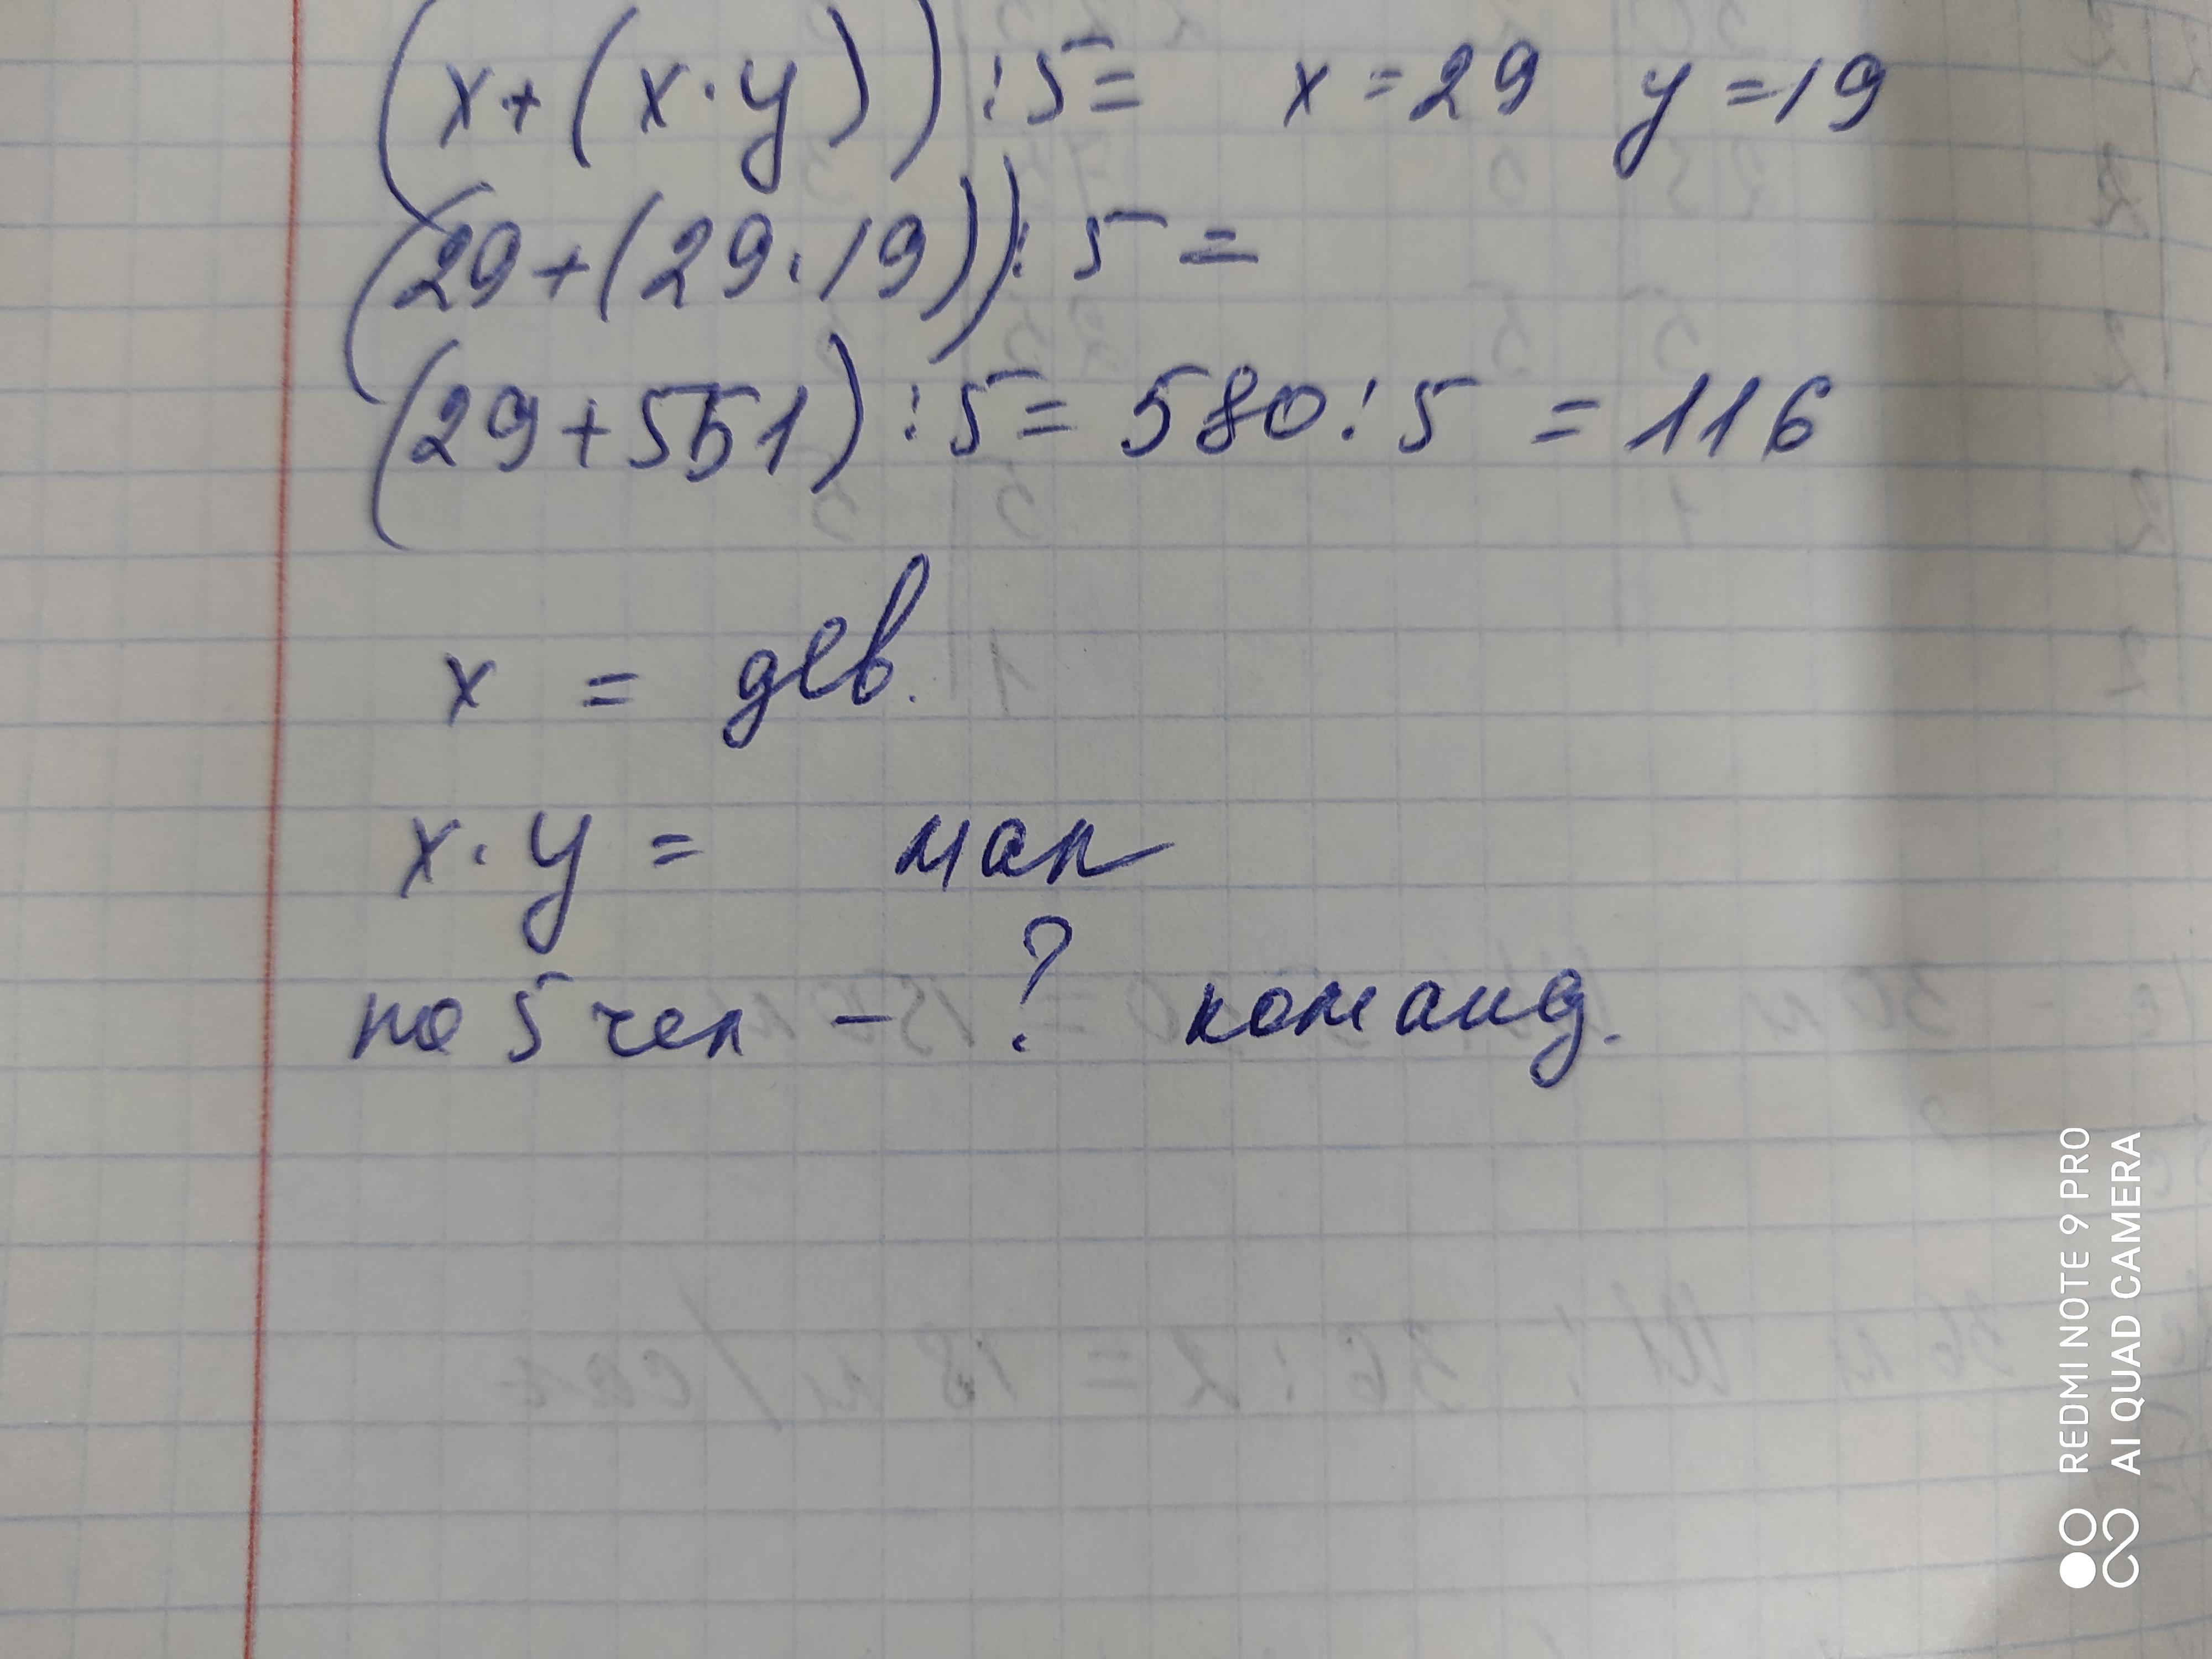 (x+(x·y)):5= x=29 y=19
(29+(29·19)):5=
(29+551):5=580:5=116
x = дев.
x·y= мал
по 5 чел – ? команд.
REDMI NOTE 9 PRO
AI QUAD CAMERA